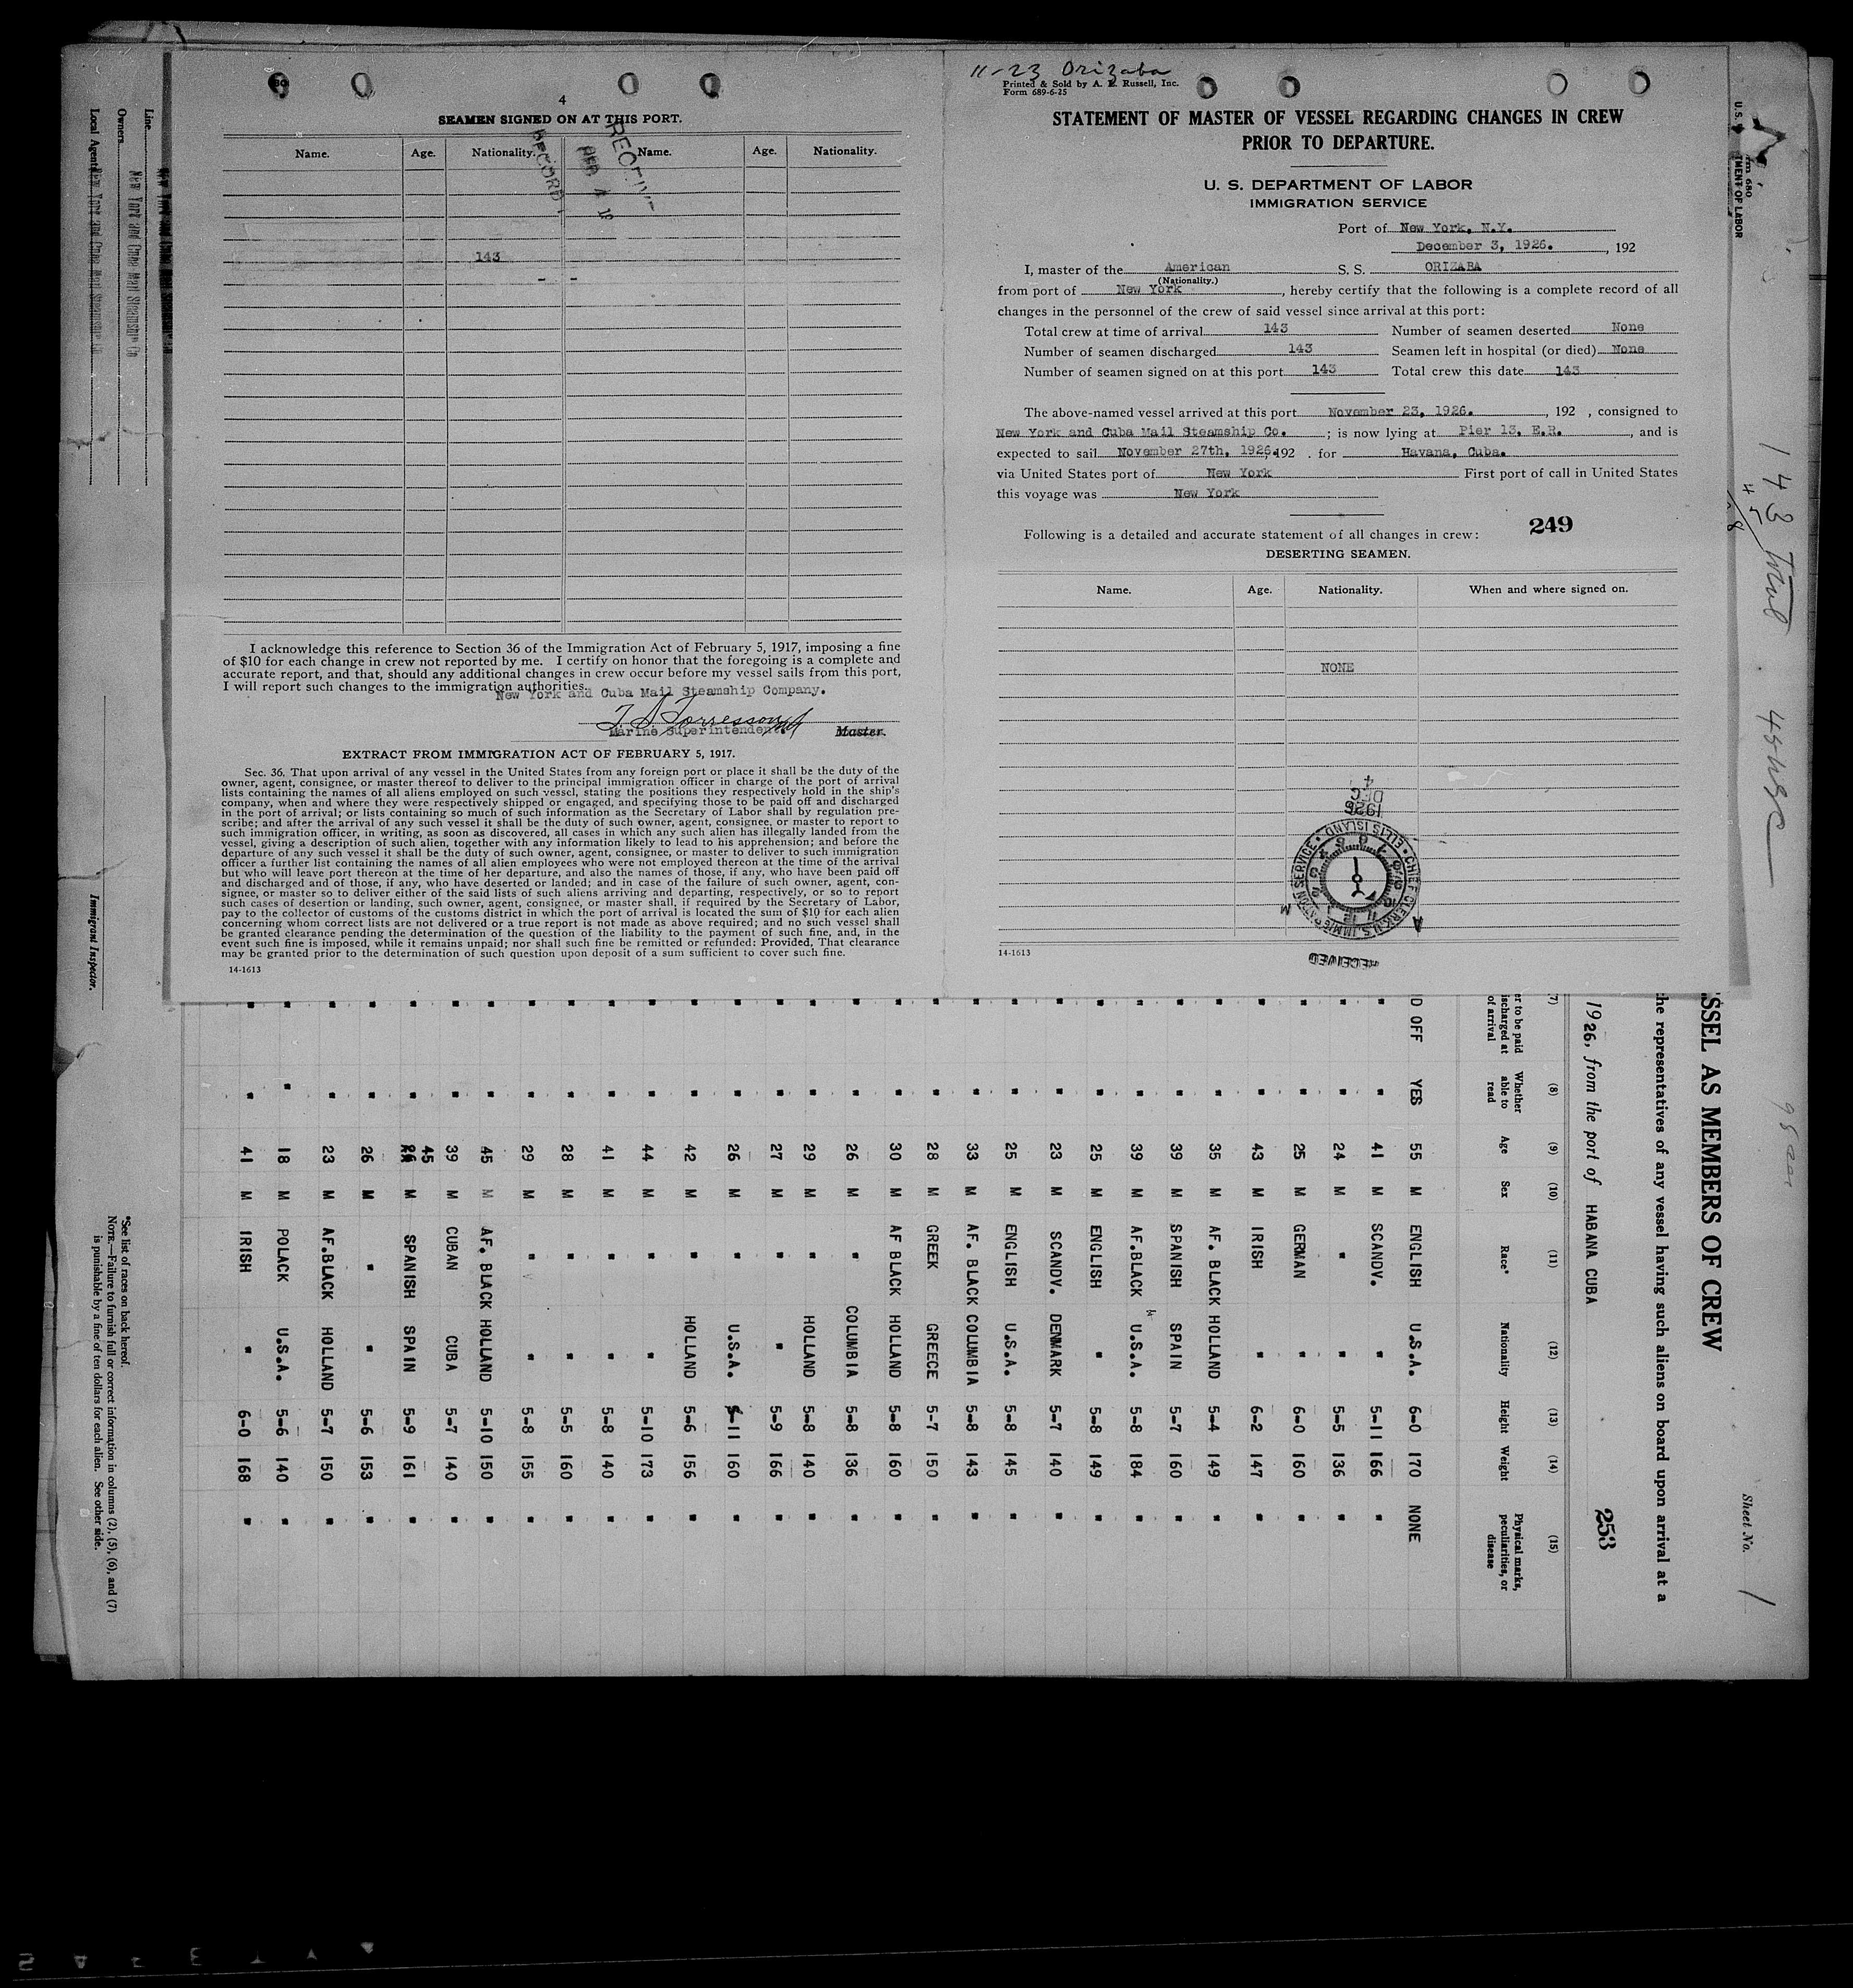 4
SEAMEN SIGNED ON AT THIS PORT.
Name. Age. Nationality. Name. Age. Nationality.
143
- -
I acknowledge this reference to Section 36 of the Immigration Act of February 5, 1917, imposing a fine
of $10 for each change in crew not reported by me. I certify on honor that the foregoing is a complete and
accurate report, and that, should any additional changes in crew occur before my vessel sails from this port,
I will report such changes to the immigration authorities.
New York and Cuba Mail Steamship Company.
Marine Superintendent. Master.
EXTRACT FROM IMMIGRATION ACT OF FEBRUARY 5, 1917.
Sec. 36. That upon arrival of any vessel in the United States from any foreign port or place it shall be the duty of the
owner, agent, consignee, or master thereof to deliver to the principal immigration officer in charge of the port of arrival
lists containing the names of all aliens employed on such vessel, stating the positions they respectively hold in the ship's
company, when and where they were respectively shipped or engaged, and specifying those to be paid off and discharged
in the port of arrival; or lists containing so much of such information as the Secretary of Labor shall by regulation pre-
scribe; and after the arrival of any such vessel it shall be the duty of such owner, agent, consignee, or master to report to
such immigration officer, in writing, as soon as discovered, all cases in which any such alien has illegally landed from the
vessel, giving a description of such alien, together with any information likely to lead to his apprehension; and before the
departure of any such vessel it shall be the duty of such owner, agent, consignee, or master to deliver to such immigration
officer a further list containing the names of all alien employees who were not employed thereon at the time of the arrival
but who will leave port thereon at the time of her departure, and also the names of those, if any, who have been paid off
and discharged and of those, if any, who have deserted or landed; and in case of the failure of such owner, agent, con-
signee, or master so to deliver either of the said lists of such aliens arriving and departing, respectively, or so to report
such cases of desertion or landing, such owner, agent, consignee, or master shall, if required by the Secretary of Labor,
pay to the collector of customs of the customs district in which the port of arrival is located the sum of $10 for each alien
concerning whom correct lists are not delivered or a true report is not made as above required; and no such vessel shall
be granted clearance pending the determination of the question of the liability to the payment of such fine, and, in the
event such fine is imposed, while it remains unpaid; nor shall such fine be remitted or refunded: Provided, That clearance
may be granted prior to the determination of such question upon deposit of a sum sufficient to cover such fine.
14-1613
11-23 Orizaba
Printed & Sold by A. E. Russell, Inc.
Form 689-6-25
STATEMENT OF MASTER OF VESSEL REGARDING CHANGES IN CREW
PRIOR TO DEPARTURE.
U. S. DEPARTMENT OF LABOR
IMMIGRATION SERVICE
Port of New York, N.Y.
December 3, 1926. , 192
I, master of the American S. S. ORIZABA
(Nationality.)
from port of New York , hereby certify that the following is a complete record of all
changes in the personnel of the crew of said vessel since arrival at this port:
Total crew at time of arrival 143 Number of seamen deserted None
Number of seamen discharged 143 Seamen left in hospital (or died) None
Number of seamen signed on at this port 143 Total crew this date 143
The above-named vessel arrived at this port November 23, 1926. , 192 , consigned to
New York and Cuba Mail Steamship Co. ; is now lying at Pier 13, E.R. , and is
expected to sail November 27th, 1926, 192 . for Havana, Cuba.
via United States port of New York First port of call in United States
this voyage was New York
249
Following is a detailed and accurate statement of all changes in crew:
DESERTING SEAMEN.
Name. Age. Nationality. When and where signed on.
NONE
1926
DEC
4
CHIEF CLERK U.S. IMMIGRATION SERVICE • ELLIS ISLAND •
RECEIVED
14-1613
Line
Owners New York and Cuba Mail Steamship Co
Local Agents New York and Cuba Mail Steamship Co
Immigrant Inspector.
Sheet No. 1
SSEL AS MEMBERS OF CREW
he representatives of any vessel having such aliens on board upon arrival at a
1926, from the port of HABANA CUBA
253
143 Total
(7) (8) (9) (10) (11) (12) (13) (14) (15)
er to be paid
ischarged at
of arrival
Whether
able to
read
Age Sex Race* Nationality Height Weight
Physical marks,
peculiarities, or
disease
D OFF YES 55 M ENGLISH U.S.A. 6-0 170 NONE
" " 41 M SCANDV. " 5-11 166 "
" " 24 M " " 5-5 136 "
" " 25 M GERMAN " 6-0 160 "
" " 43 M IRISH " 6-2 147 "
" " 35 M AF. BLACK HOLLAND 5-4 149 "
" " 39 M SPANISH SPAIN 5-7 160 "
" " 39 M AF.BLACK U.S.A. 5-8 184 "
" " 25 M ENGLISH " 5-8 149 "
" " 23 M SCANDV. DENMARK 5-7 140 "
" " 25 M ENGLISH U.S.A. 5-8 145 "
" " 33 M AF. BLACK COLUMBIA 5-8 143 "
" " 28 M GREEK GREECE 5-7 150 "
" " 30 M AF BLACK HOLLAND 5-8 160 "
" " 26 M " COLUMBIA 5-8 136 "
" " 29 M " HOLLAND 5-8 140 "
" " 27 M " " 5-9 166 "
" " 26 M " U.S.A. 5-11 160 "
" " 42 M " HOLLAND 5-6 156 "
" " 44 M " " 5-10 173 "
" " 41 M " " 5-8 140 "
" " 28 M " " 5-5 160 "
" " 29 M " " 5-8 155 "
" " 45 M AF. BLACK HOLLAND 5-10 150 "
" " 39 M CUBAN CUBA 5-7 140 "
" " 45 M SPANISH SPAIN 5-9 161 "
" " 26 M " " 5-6 153 "
" " 23 M AF.BLACK HOLLAND 5-7 150 "
" " 18 M POLACK U.S.A. 5-6 140 "
" " 41 M IRISH " 6-0 168 "
*See list of races on back hereof.
NOTE.—Failure to furnish full or correct information in columns (2), (5), (6), and (7)
is punishable by a fine of ten dollars for each alien. See other side.